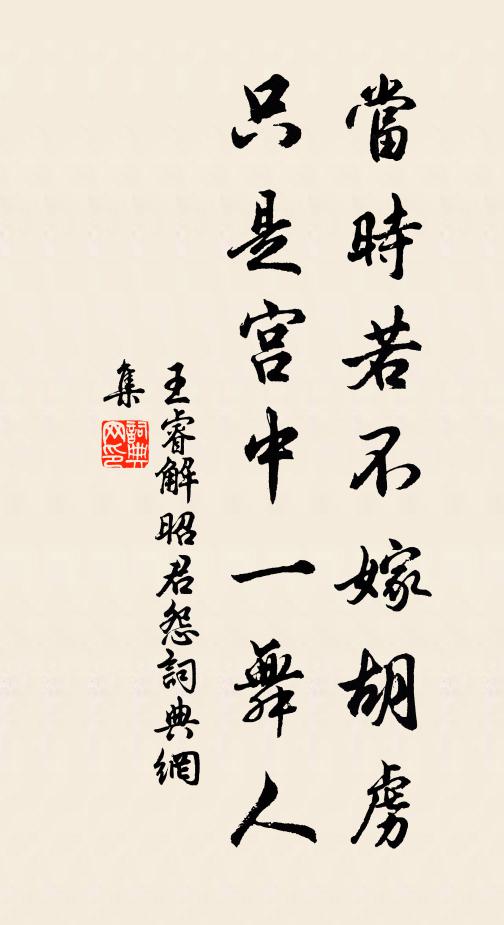 當時若不嫁胡虜
只是宮中一舞人
王睿解昭君怨詞典網
集
詞典網印